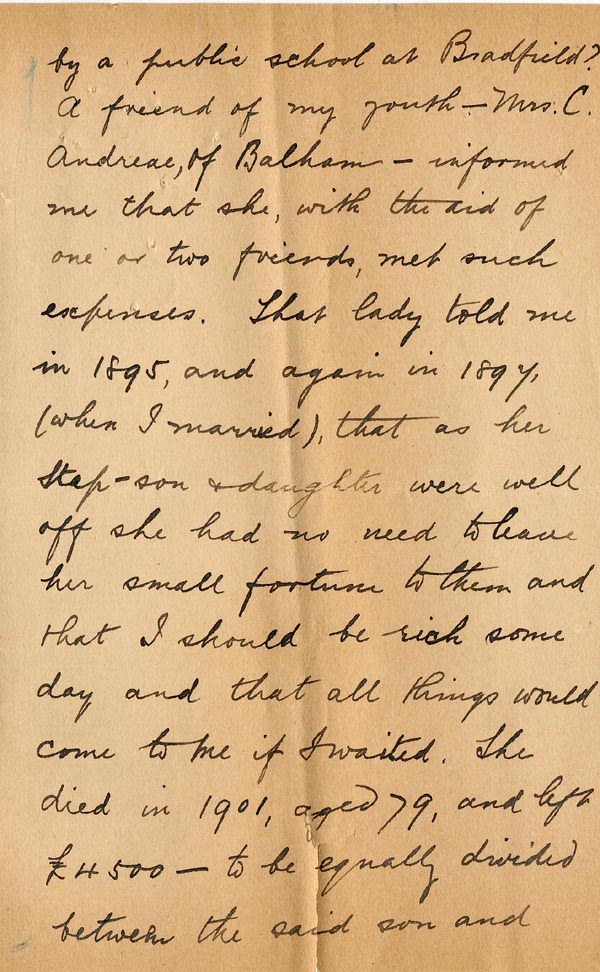 by a public school at Bradfield?
A friend of my youth – Mrs. C.
Andreae, of Balham – informed
me that she, with the aid of
one or two friends, met such
expenses. That lady told me
in 1895, and again in 1897,
(when I married), that as her
Step-son & daughter were well
off she had no need to leave
her small fortune to them and
that I should be rich some
day and that all things would
come to me if I waited. She
died in 1901, aged 79, and left
£4500 – to be equally divided
between the said son and